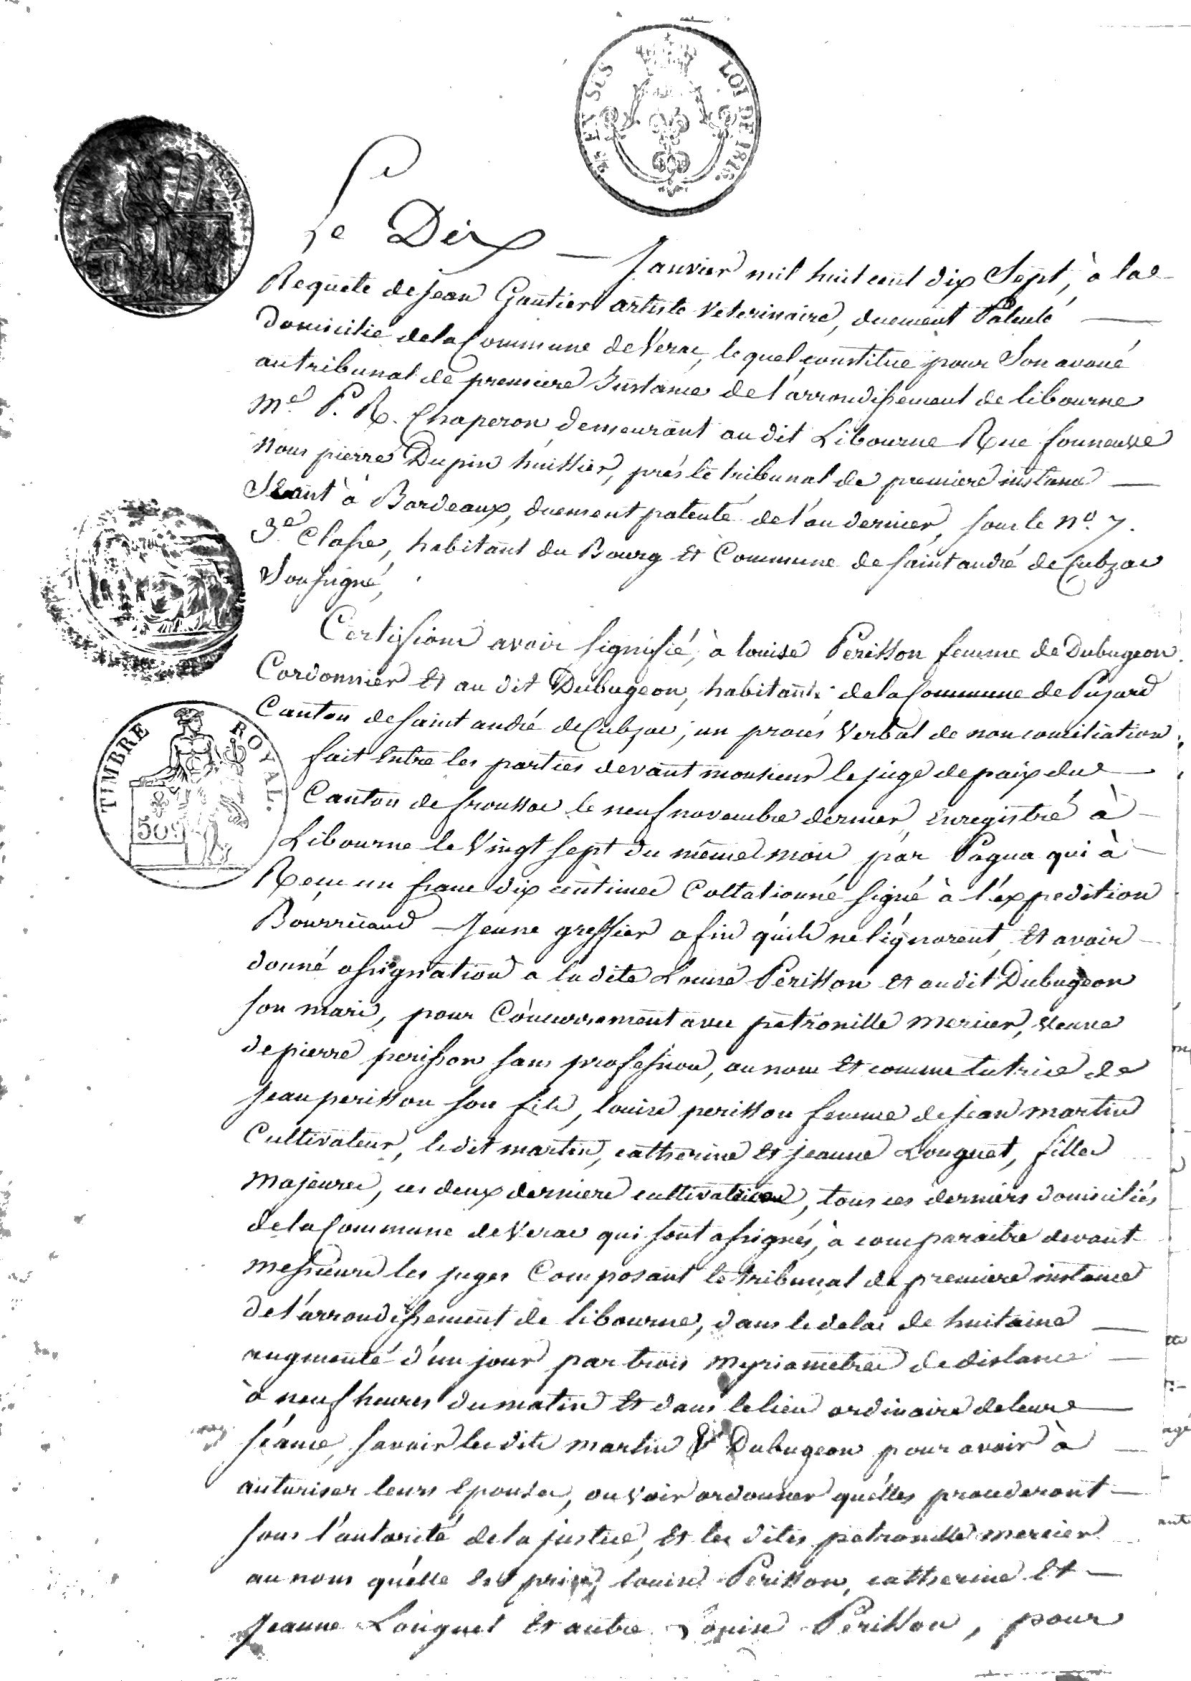 EN SUS LOI DE 1816.
Le Dix — Janvier mil huit cent dix Sept, à la
Requete de Jean Gautier artiste veterinaire, duement Patenté
domicilié de la Commune de Verac, lequel constitue pour Son avoué
au tribunal de premiere Instance de l'arrondissement de libourne
Me. P. R. Chaperon demeurant au dit Libourne Rue fonneuve
Nous pierre Dupin huissier, près le tribunal de premiere instance
Séant à Bordeaux, duement patenté de l'an dernier, sous le no. 7.
3e Classe, habitant du Bourg et Commune de saint andré de Cubzac
Soussigné,
Certifions avoir signifié, à louise Perisson femme de Dubugeon
Cordonnier et au dit Dubugeon, habitants de la Commune de Pujard
Canton de saint andré de Cubzac, un procès Verbal de non conciliation
fait entre les parties devant monsieur le juge de paix du
TIMBRE ROYAL.
509
Canton de fronsac le neuf novembre dernier, enregistré à
Libourne le Vingt sept du même mois, par Pagua qui à
Reçu un franc dix centimes Collationné signé à l'expedition
Jeune greffier afin qu'ils ne l'ignorent, et avoir
donné assignation a la dite Louise Perisson et au dit Dubugeon
son mari, pour Concurremment avec petronille mercier, veuve
de pierre perisson sans profession, au nom et comme tutrice de
Jean perisson son fils, louise perisson femme de jean martin
Cultivateur, le dit martin, catherine et jeanne Longuet, filles
majeures, ces deux derniere cultivatrices, tous ces derniers domiciliés
de la Commune de Verac qui sont assignés, à comparaitre devant
messieurs les juges Composant le tribunal de premiere instance
de l'arrondissement de libourne, dans le delai de huitaine
augmenté d'un jour par trois myriametres de distance
à neuf heures du matin et dans le lieu ordinaire de leurs
séances, savoir les dits martin & Dubugeon pour avoir à
autoriser leurs epouses, ou voir ordonner qu'elles procederont
sous l'autorité de la justice, et les dites petronille mercier
au nom qu'elle est prise, louise Perisson, catherine et
Jeanne Longuet et autre Louise Perisson, pour